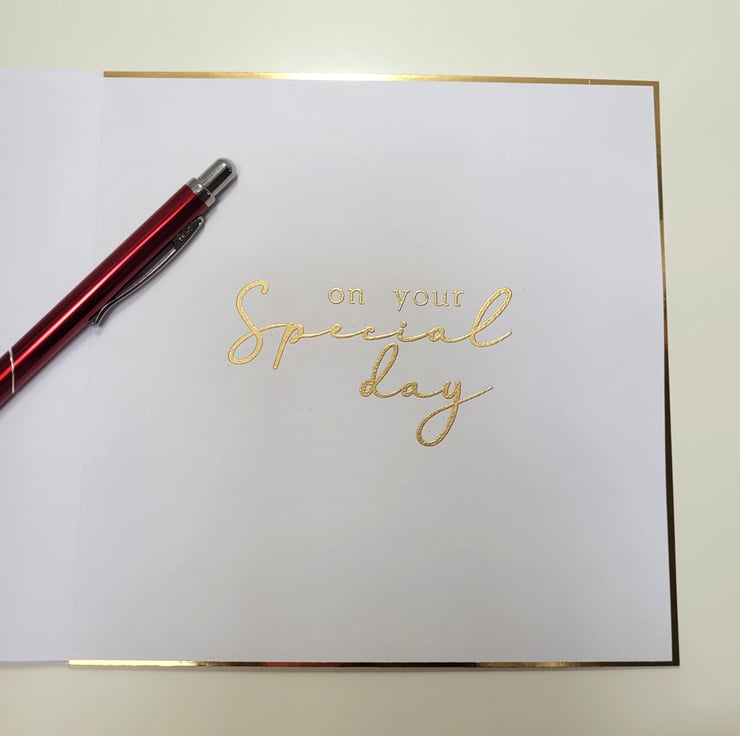 on your
Special
day